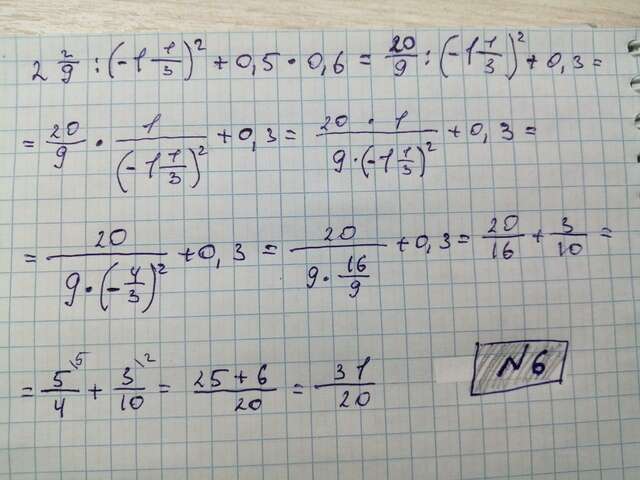 2 2/9 : (-1 1/3)² + 0,5 · 0,6 = 20/9 : (-1 1/3)² + 0,3 =
= 20/9 · 1/(-1 1/3)² + 0,3 = 20 · 1/9 · (-1 1/3)² + 0,3 =
= 20/9 · (-4/3)² + 0,3 = 20/9 · 16/9 + 0,3 = 20/16 + 3/10 =
= 5\5/4 + 3\2/10 = 25 + 6/20 = 31/20
N6